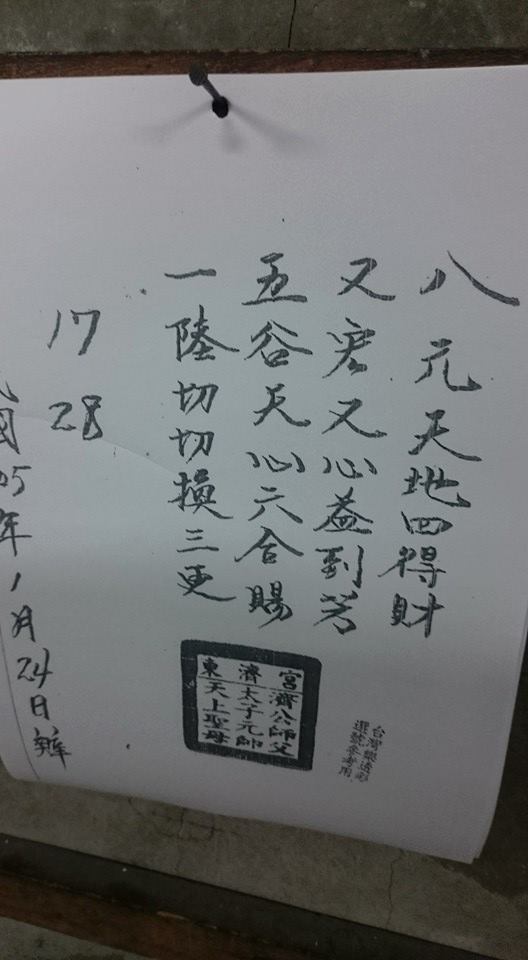 八元天地四得財
又宏又心益到芳
五谷天心六合賜
一陸切切損三更
17 28
國05年1月24日辦
宮濟公師父
濟太子元帥
東天上聖母
台灣
選號參考用